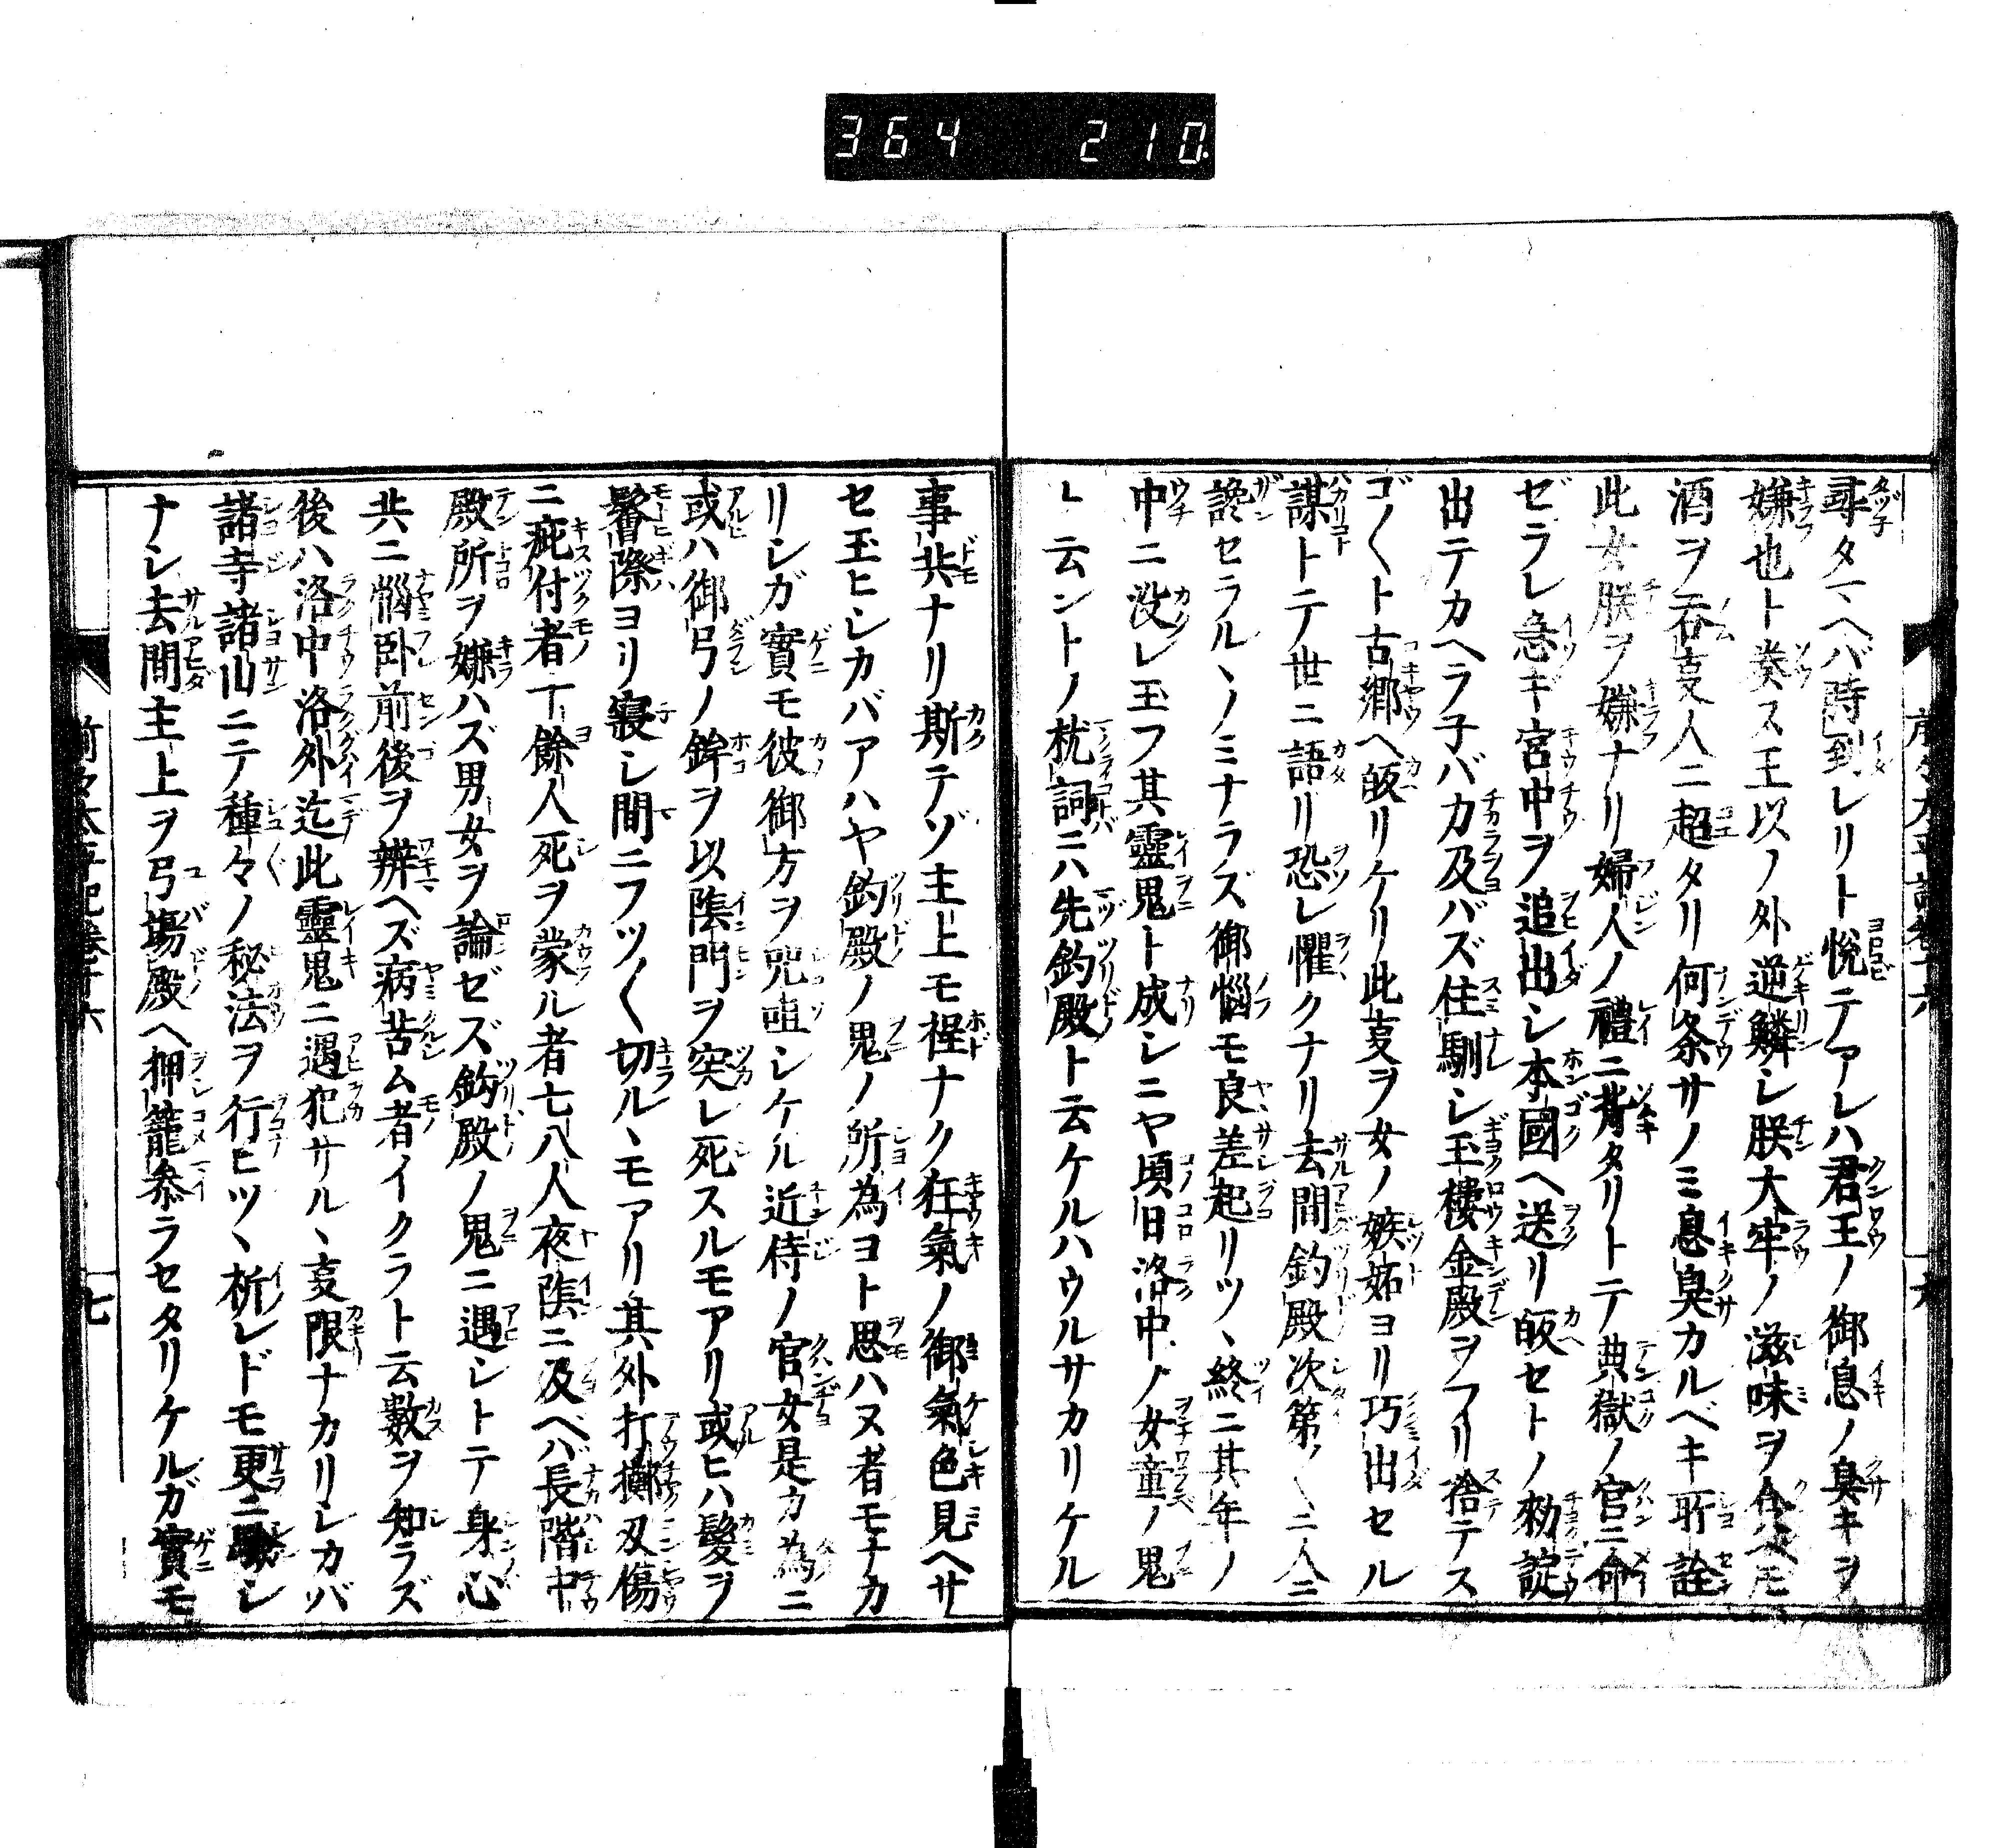 364 210
尋タマヘバ時到レリト悅テアレハ君王ノ御息ノ臭キヲ
嫌也ト奏ス王以ノ外逆鱗シ朕大牢ノ滋味ヲ
酒ヲ呑吏人ニ超タリ何条サノミ息臭カルベキ所詮
此女朕ヲ嫌ナリ婦人ノ禮ニ背タリトテ典獄ノ官ニ命
ゼラレ急キ宮中ヲ追出シ本國ヘ送リ皈セトノ勅諚
出テカヘラ子バ力及バズ住馴シ玉樓金殿ヲフリ捨テス
ゴ〱ト古郷ヘ皈リケリ此吏ヲ女ノ嫉妬ヨリ巧出セル
謀トテ世ニ語リ恐レ懼クナリ去間釣殿次第〱ニ人ニ
讒セラルヽノミナラズ御惱モ良差起リツヽ終ニ其年ノ
中ニ没シ玉フ其靈鬼ト成シニヤ頃日洛中ノ女童ノ鬼
ト云ントノ枕詞ニハ先釣殿ト云ケルハウルサカリケル
事共ナリ斯テゾ主上モ程ナク狂氣ノ御氣色見ヘサ
セ玉ヒシカバアハヤ釣殿ノ鬼ノ所為ヨト思ハヌ者モナカ
リシガ實モ彼御方ヲ呪咀シケル近侍ノ官女是カ為ニ
或ハ御弓ノ鉾ヲ以陰門ヲ突レ死スルモアリ或ヒハ髮ヲ
際ヨリ寢シ間ニフツ〱切ルヽモアリ其外打擲刄傷
ニ疵付者十餘人死ヲ蒙ル者七八人夜陰ニ及ベバ長階中
殿所ヲ嫌ハズ男女ヲ論ゼズ釣殿ノ鬼ニ遇シトテ身心
共ニ惱卧前後ヲ辨ヘズ病苦ム者イクラト云數ヲ知ラズ
後ハ洛中洛外迄此靈鬼ニ遇犯サルヽ吏限ナカリシカバ
諸寺諸山ニテ種々ノ秘法ヲ行ヒツヽ祈レドモ更ニ驗シ
ナシ去間主上ヲ弓場殿ヘ押籠参ラセタリケルガ實モ
前々太平記卷十六
七